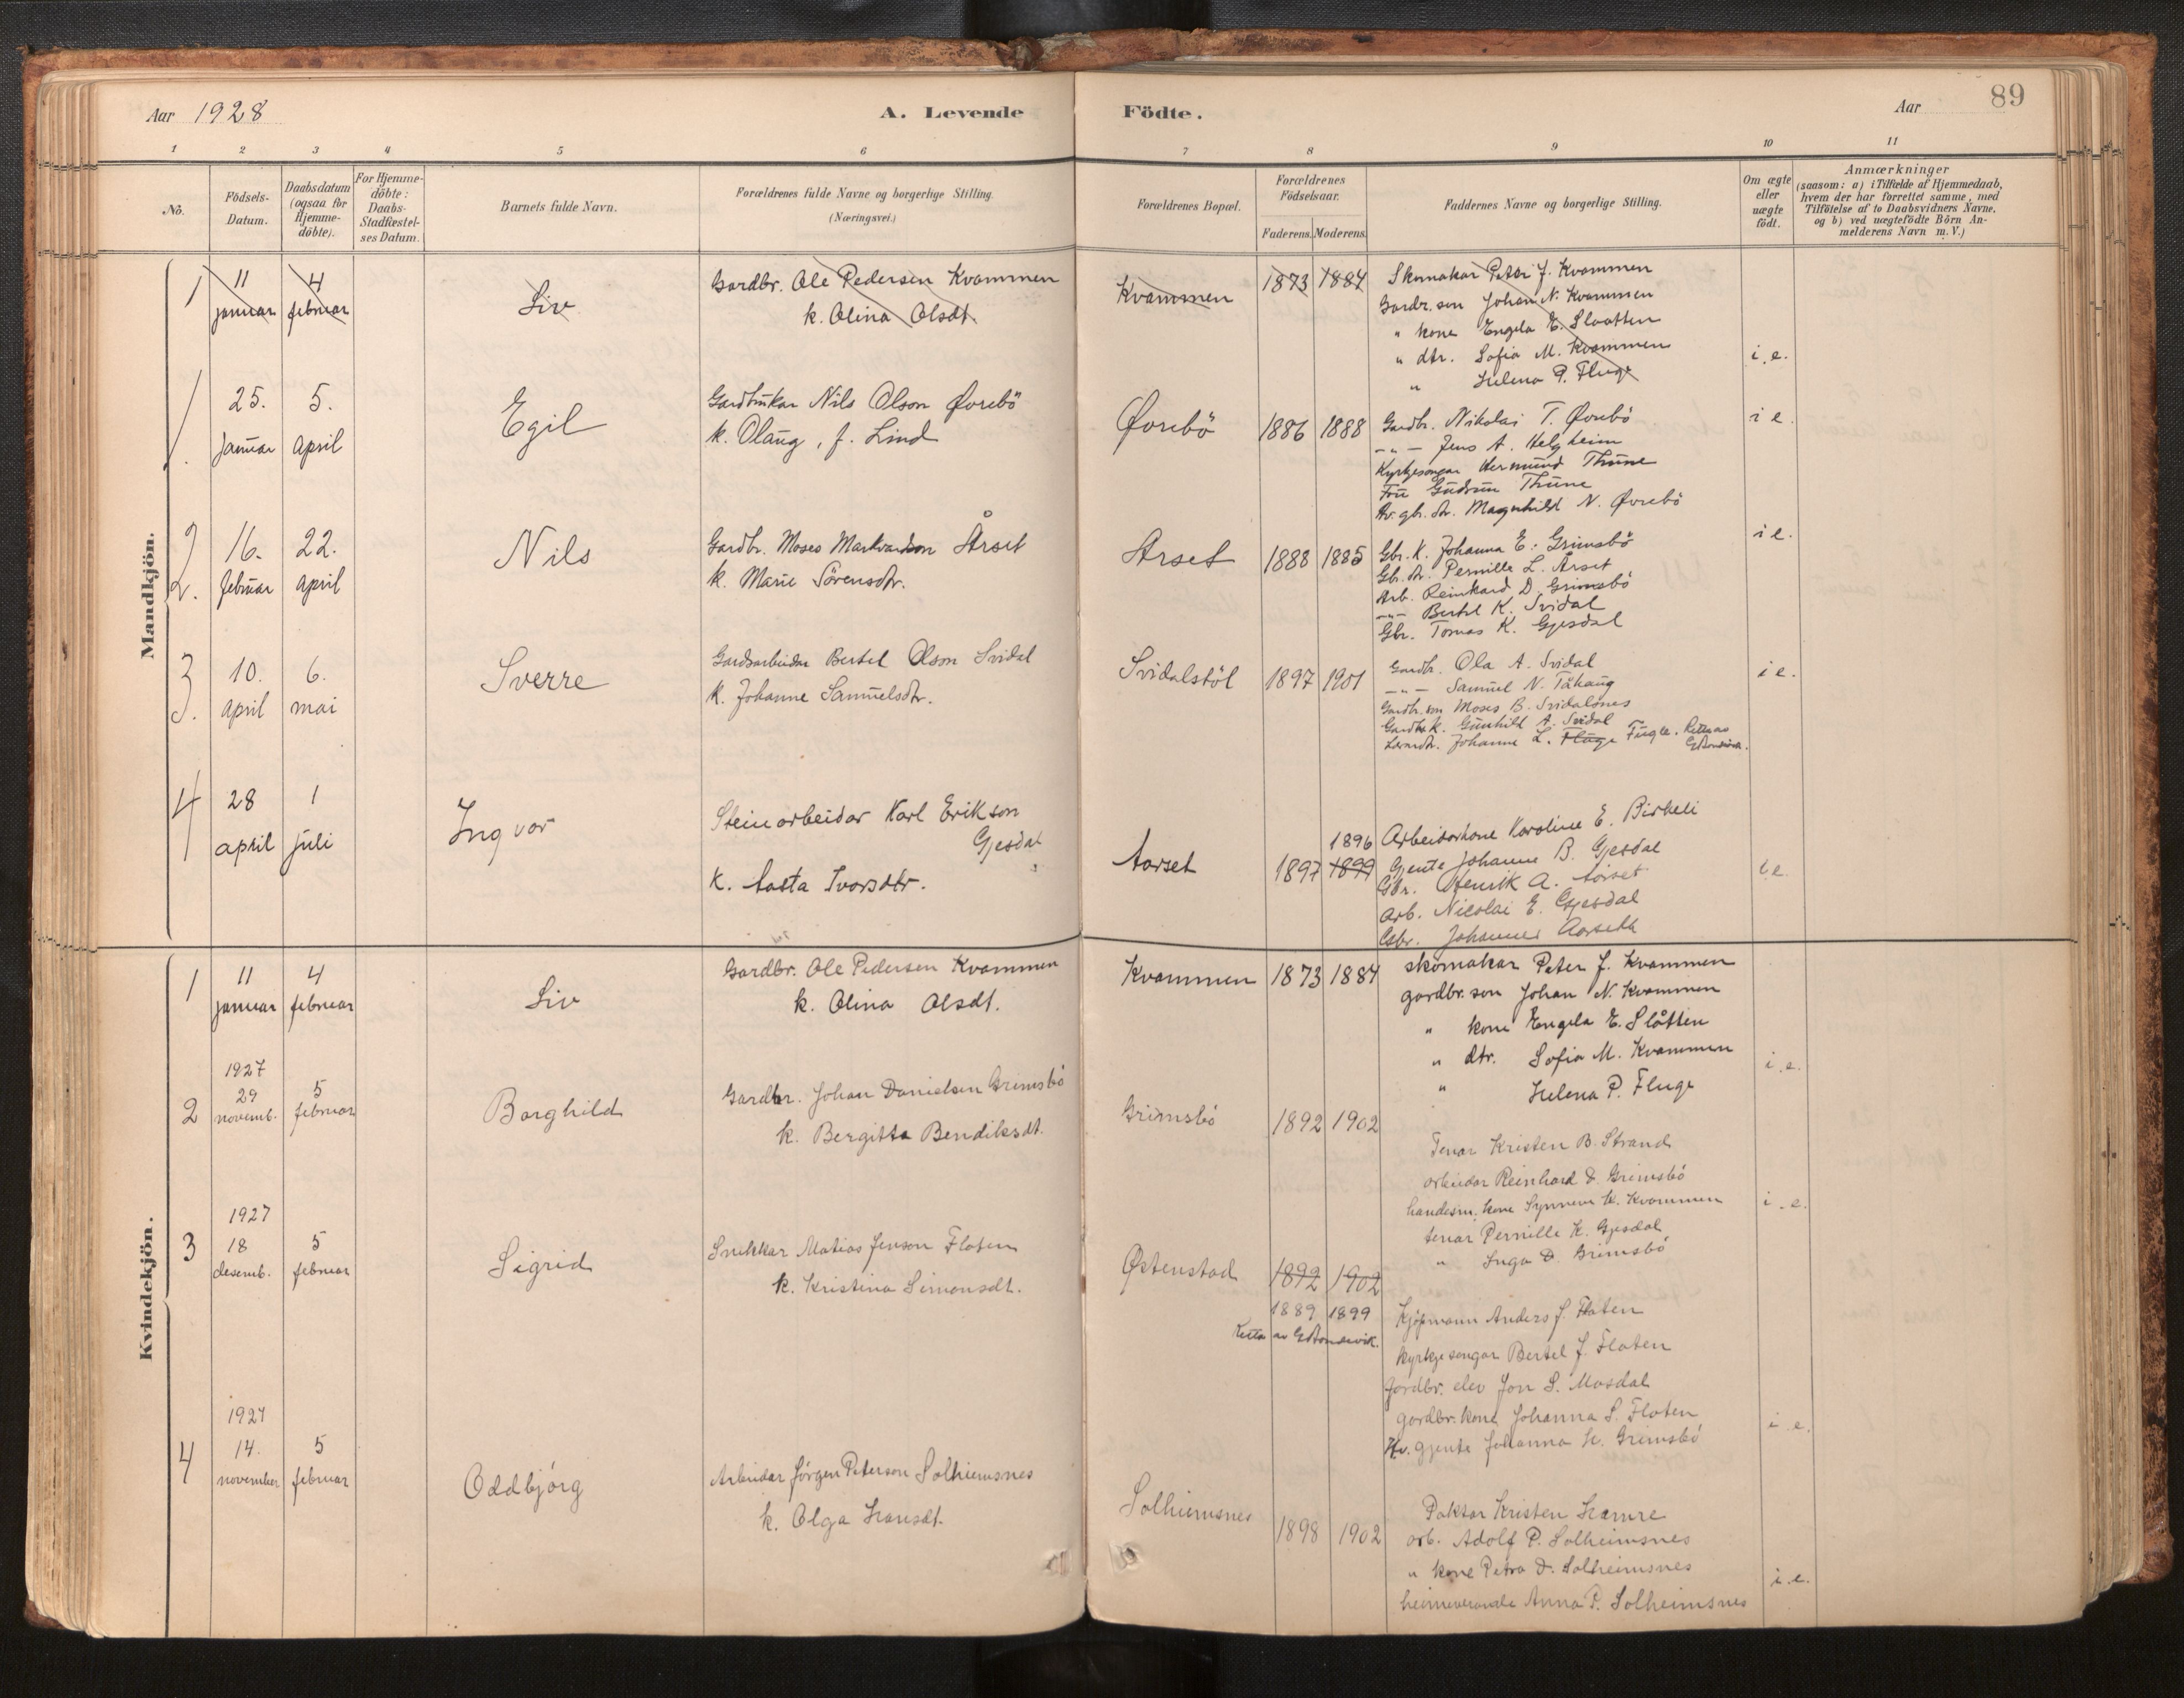 Aar 1928
A. Levende
Födte.
Aar
89
1 2 3 4 5 6 7 8 9 10 11
No.
Födsels-Datum.
Daabsdatum (ogsaa for Hjemme-döbte).
For Hjemme-döbte: Daabs-Stadfæstel-ses Datum.
Barnets fulde Navn.
Forældrenes fulde Navne og borgerlige Stilling. (Næringsvei.)
Forældrenes Bopæl.
Forældrenes Födselsaar.
Faderens. Moderens.
Faddernes Navne og borgerlige Stilling.
Om ægte eller uægte födt.
Anmærkninger
(saasom: a) i Tilfælde af Hjemmedaab, hvem der har forrettet samme, med Tilföielse af to Daabsvidners Navne, og b) ved uægtefödte Börn An-melderens Navn m. V.)
Mandkjön.
1
11 januar
4 februar
Liv
Gardbr. Ole Pedersen Kvammen
k. Olina Olsdt.
Kvammen
1873 1884
Skomakar Peter J. Kvammen
Gardr. son Johan N. Kvammen
" kone Engela E. Slaatten
" dtr. Sofia M. Kvammen
" Helena P. Fluge
i.e.
1.
25. januar
5. april
Egil
Gardbrukar Nils Olson Øvrebö
k. Olaug, f. Lind
Øvrebö
1886 1888
Gardb. Nikolai T. Øvrebö
-"- Jens A. Helgheim
Kyrkjesongar Hermund Thune
Fru Gudrun Thune
gb. dr. Magnhild N. Øvrebö
i e.
2.
16. februar
22. april
Nils
Gardb. Moses Markvardson Årset
k. Marie Sörensdtr.
Årset
1888 1885
Gbr. K. Johanna E. Grimsbö
Gb. dr. Pernille L. Årset
Arb. Reinhard D. Grimsbö
-"- Bertel K. Svidal
Gbr. Tomas K. Gjesdal
i e.
3.
10. april
6. mai
Sverre
Gardsarbeidar Bertel Olson Svidal
k. Johanne Samuelsdtr.
Svidalstöl
1897 1901
Gardb. Ola A. Svidal
-"- Samuel N. Tåhaug
Gardb. son Moses B. Svidalsnes
Gardb. K. Gunhild A. Svidal
Johanne L. Fluge Fugle. Retta av
i e.
4
28 april
1 juli
Ingvar
Steinarbeidar Karl Erikson
Gjesdal
k. Aasta Ivarsdtr.
Aarset
1896
1897 1899
Arbeidarkone Karoline E. Birkeli
Gjente Johanne B. Gjesdal
Gbr. Henrik A. Aarset
Arb. Nicolai E. Gjesdal
Gbr. Johannes Aarseth
i.e.
Kvindekjön.
1
11 januar
4 februar
Liv
Gardbr. Ole Pedersen Kvammen
k. Olina Olsdt.
Kvammen
1873 1884
skomakar Peter J. Kvammen
gardbr. son Johan N. Kvammen
" kone Engela E. Slåtten
" dtr. Sofia M. Kvammen
" Helena P. Fluge
i.e.
2
1927
29 novemb.
5 februar
Borghild
Gardbr. Johan Danielsen Grimsbö
k. Bergitta Bendiksdt.
Grimsbö
1892 1902
Tenar Kristen B. Strand
arbeidar Reinhard D. Grimsbö
handesm. kone Synneve H. Kvammen
tenar Pernille K. Gjesdal
" Inga D. Grimsbö
i.e.
3
1927
18 desemb.
5 februar
Sigrid
Snikkar Matias Jenson Flaten
k. Kristina Simonsdt.
Østenstad
1892 1902
1889 1899
Retta av
Kjøpmann Anders J. Flaten
kyrkjesongar Bertel J. Flaten
Jordbr. elev Jon S. Mosdal
gardbr. kone Johanna S. Flaten
gjente Johanna H. Grimsbö
i e.
4
1927
14. november
5 februar
Oddbjörg
Arbeidar Jörgen Peterson Solheimsnes
k. Olga Hansdt.
Solheimsnes
1898 1902
Doktor Kristen Hamre
arb. Adolf P. Solheimsnes
" kone Petra D. Solheimsnes
heimeverande Anna P. Solheimsnes
i.e.